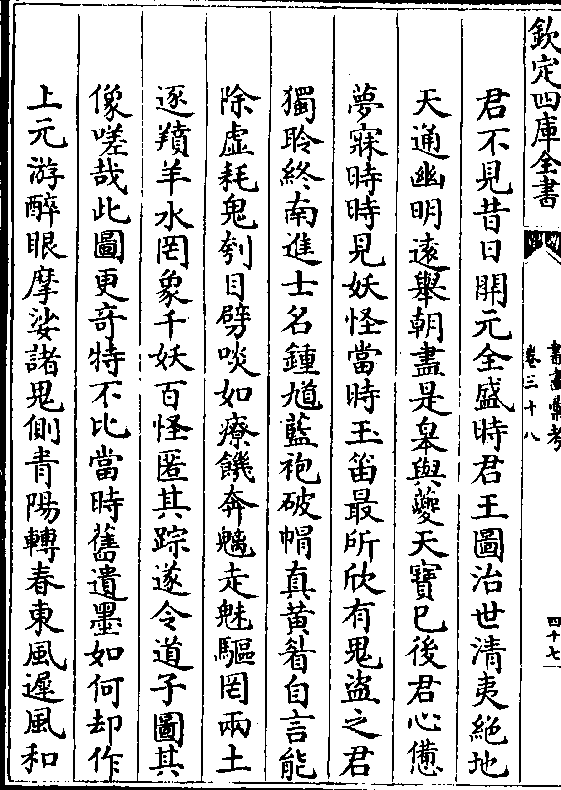 欽定四庫全書
書畫彙考
卷三十八
四十七
君不見昔日開元全盛時君王圖治世清夷絶地
天通幽明遠舉朝盡是皋與夔天寶已後君心憊
夢寐時時見妖怪當時玉笛最所欣有鬼盜之君
獨聆終南進士名鍾馗藍袍破帽真黃自言能
除虛耗鬼刳目劈啖如療饑奔魑走魅驅罔兩土
逐羵羊水罔象千妖百怪匿其踪遂令道子圖其
像嗟哉此圖更竒特不比當時舊遺墨如何却作
上元游醉眼摩娑諸鬼側青陽轉春東風遲風和